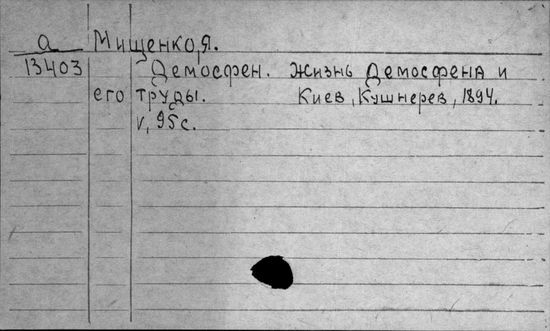 а Мищенко, Я.
13403 Демосфен. Жизнь Демосфена и
его труды. Киев, Кушнерев, 1894.
V, 95 с.